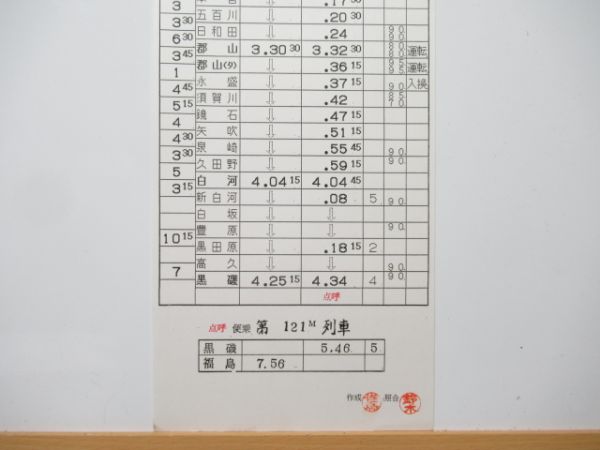 3
五百川 .20 30
3 30
日和田 .24 90 90
6 30
郡山 3.30 30 3.32 30 80 80 運転
3 45
郡山(タ) .36 15 95 95 運転
1
永盛 .37 15 90 入換
4 45
須賀川 .42 85 70
5 15
鏡石 .47 15
4
矢吹 .51 15
4 30
泉崎 .55 45 90
3 30
久田野 .59 15 90
5
白河 4.04 15 4.04 45
3 15
新白河 .08 5 90
白坂
豊原 90
10 15
黒田原 .18 15 2
高久 90
7
黒磯 4.25 15 4.34 4 90
点呼
点呼 便乗 第 121M 列車
黒磯 5.46 5
福島 7.56
作成 照合 鈴木